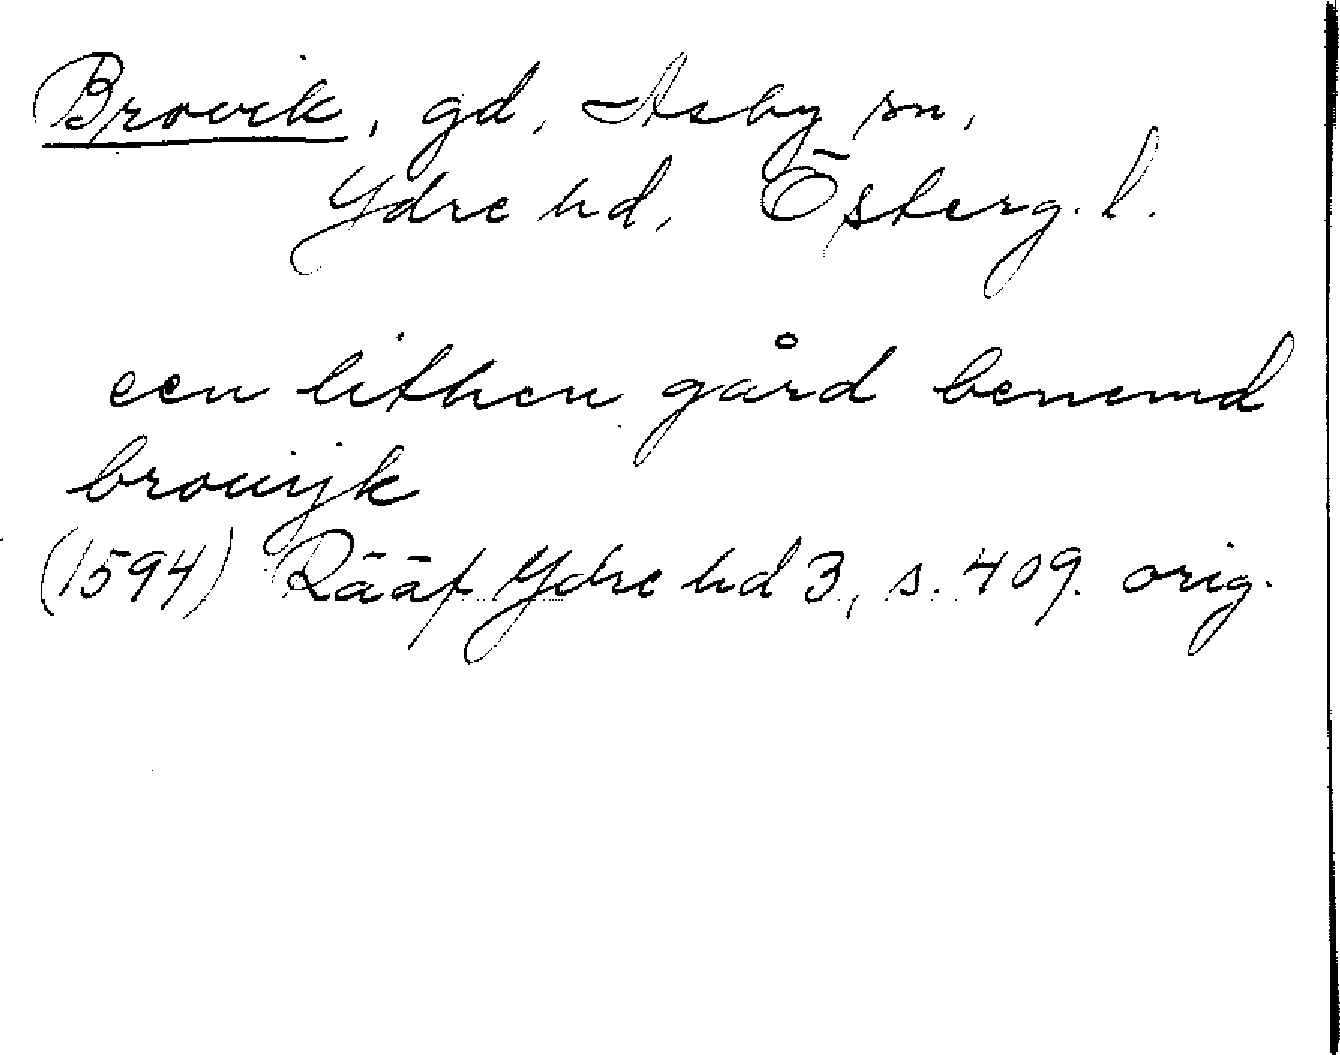 Brovik, gd, Asby sn,
Ydre hd, Österg. l.
een lithen gård benemd
browijk
(1594) Rääf Ydre hd 3, s. 409. orig.